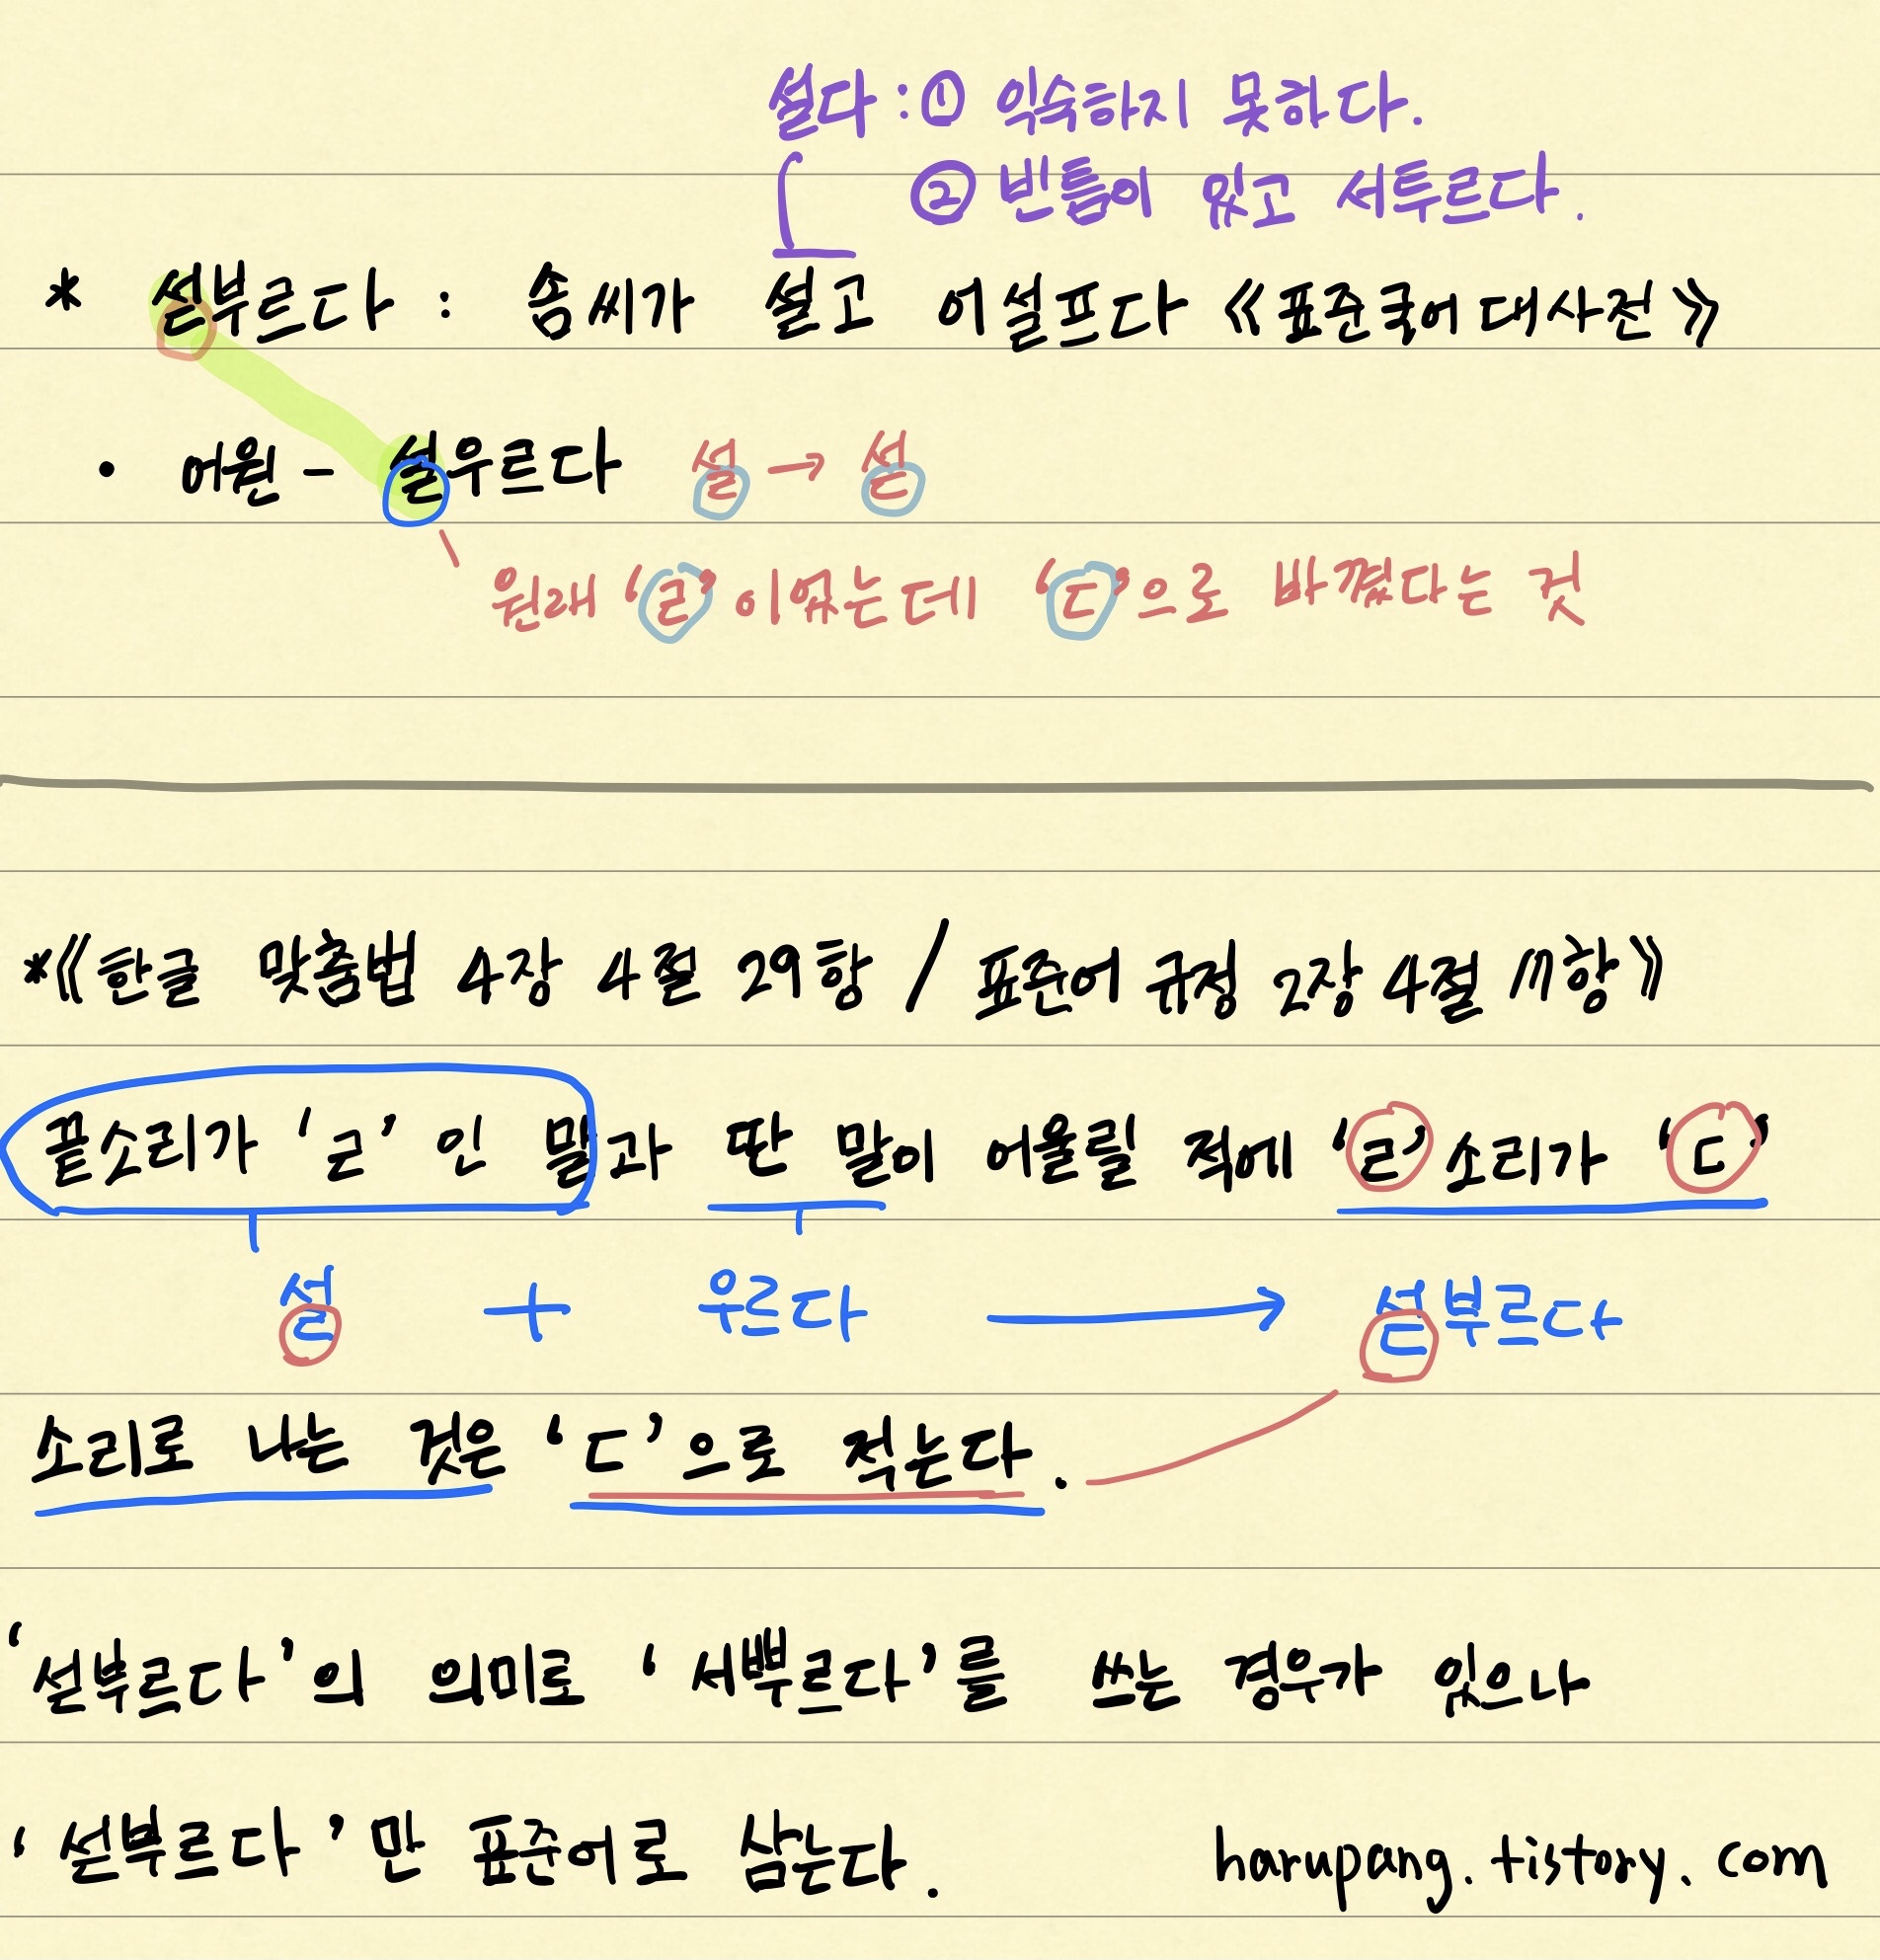 설다 : ① 익숙하지 못하다.
② 빈틈이 있고 서투르다.
* 섣부르다 : 솜씨가 설고 어설프다 《표준국어대사전》
• 어원 - 설우르다 설 → 섣
원래 'ㄹ'이었는데 'ㄷ'으로 바꼈다는 것
*《한글 맞춤법 4장 4절 29항 / 표준어 규정 2장 4절 17항》
끝소리가 'ㄹ' 인 말과 딴 말이 어울릴 적에 'ㄹ' 소리가 'ㄷ'
설 + 우르다 → 섣부르다
소리로 나는 것은 'ㄷ'으로 적는다.
'섣부르다'의 의미로 '서뿌르다'를 쓰는 경우가 있으나
'섣부르다'만 표준어로 삼는다. harupang.tistory.com